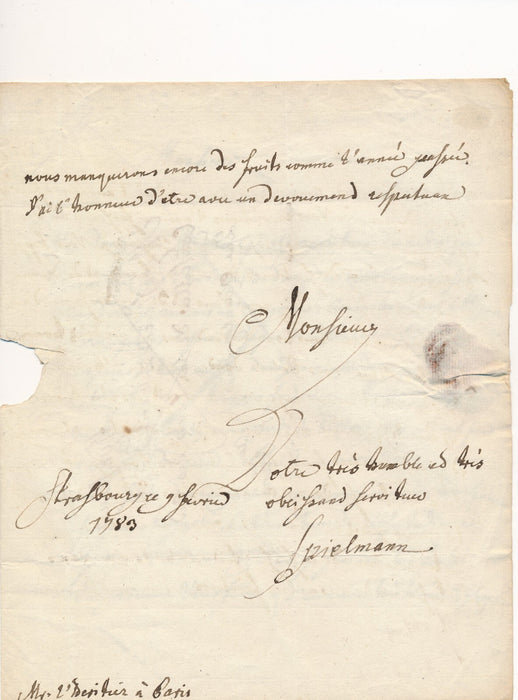 nous manquerons encore des fruits comme l'année passée.
J'ai l'honneur d'etre avec un devouement respectueux
Monsieur
Votre très humble et très
Strasbourg ce 9 fevrier obeissand serviteur
1783
Spielmann
Mr. l'Heritier à Paris